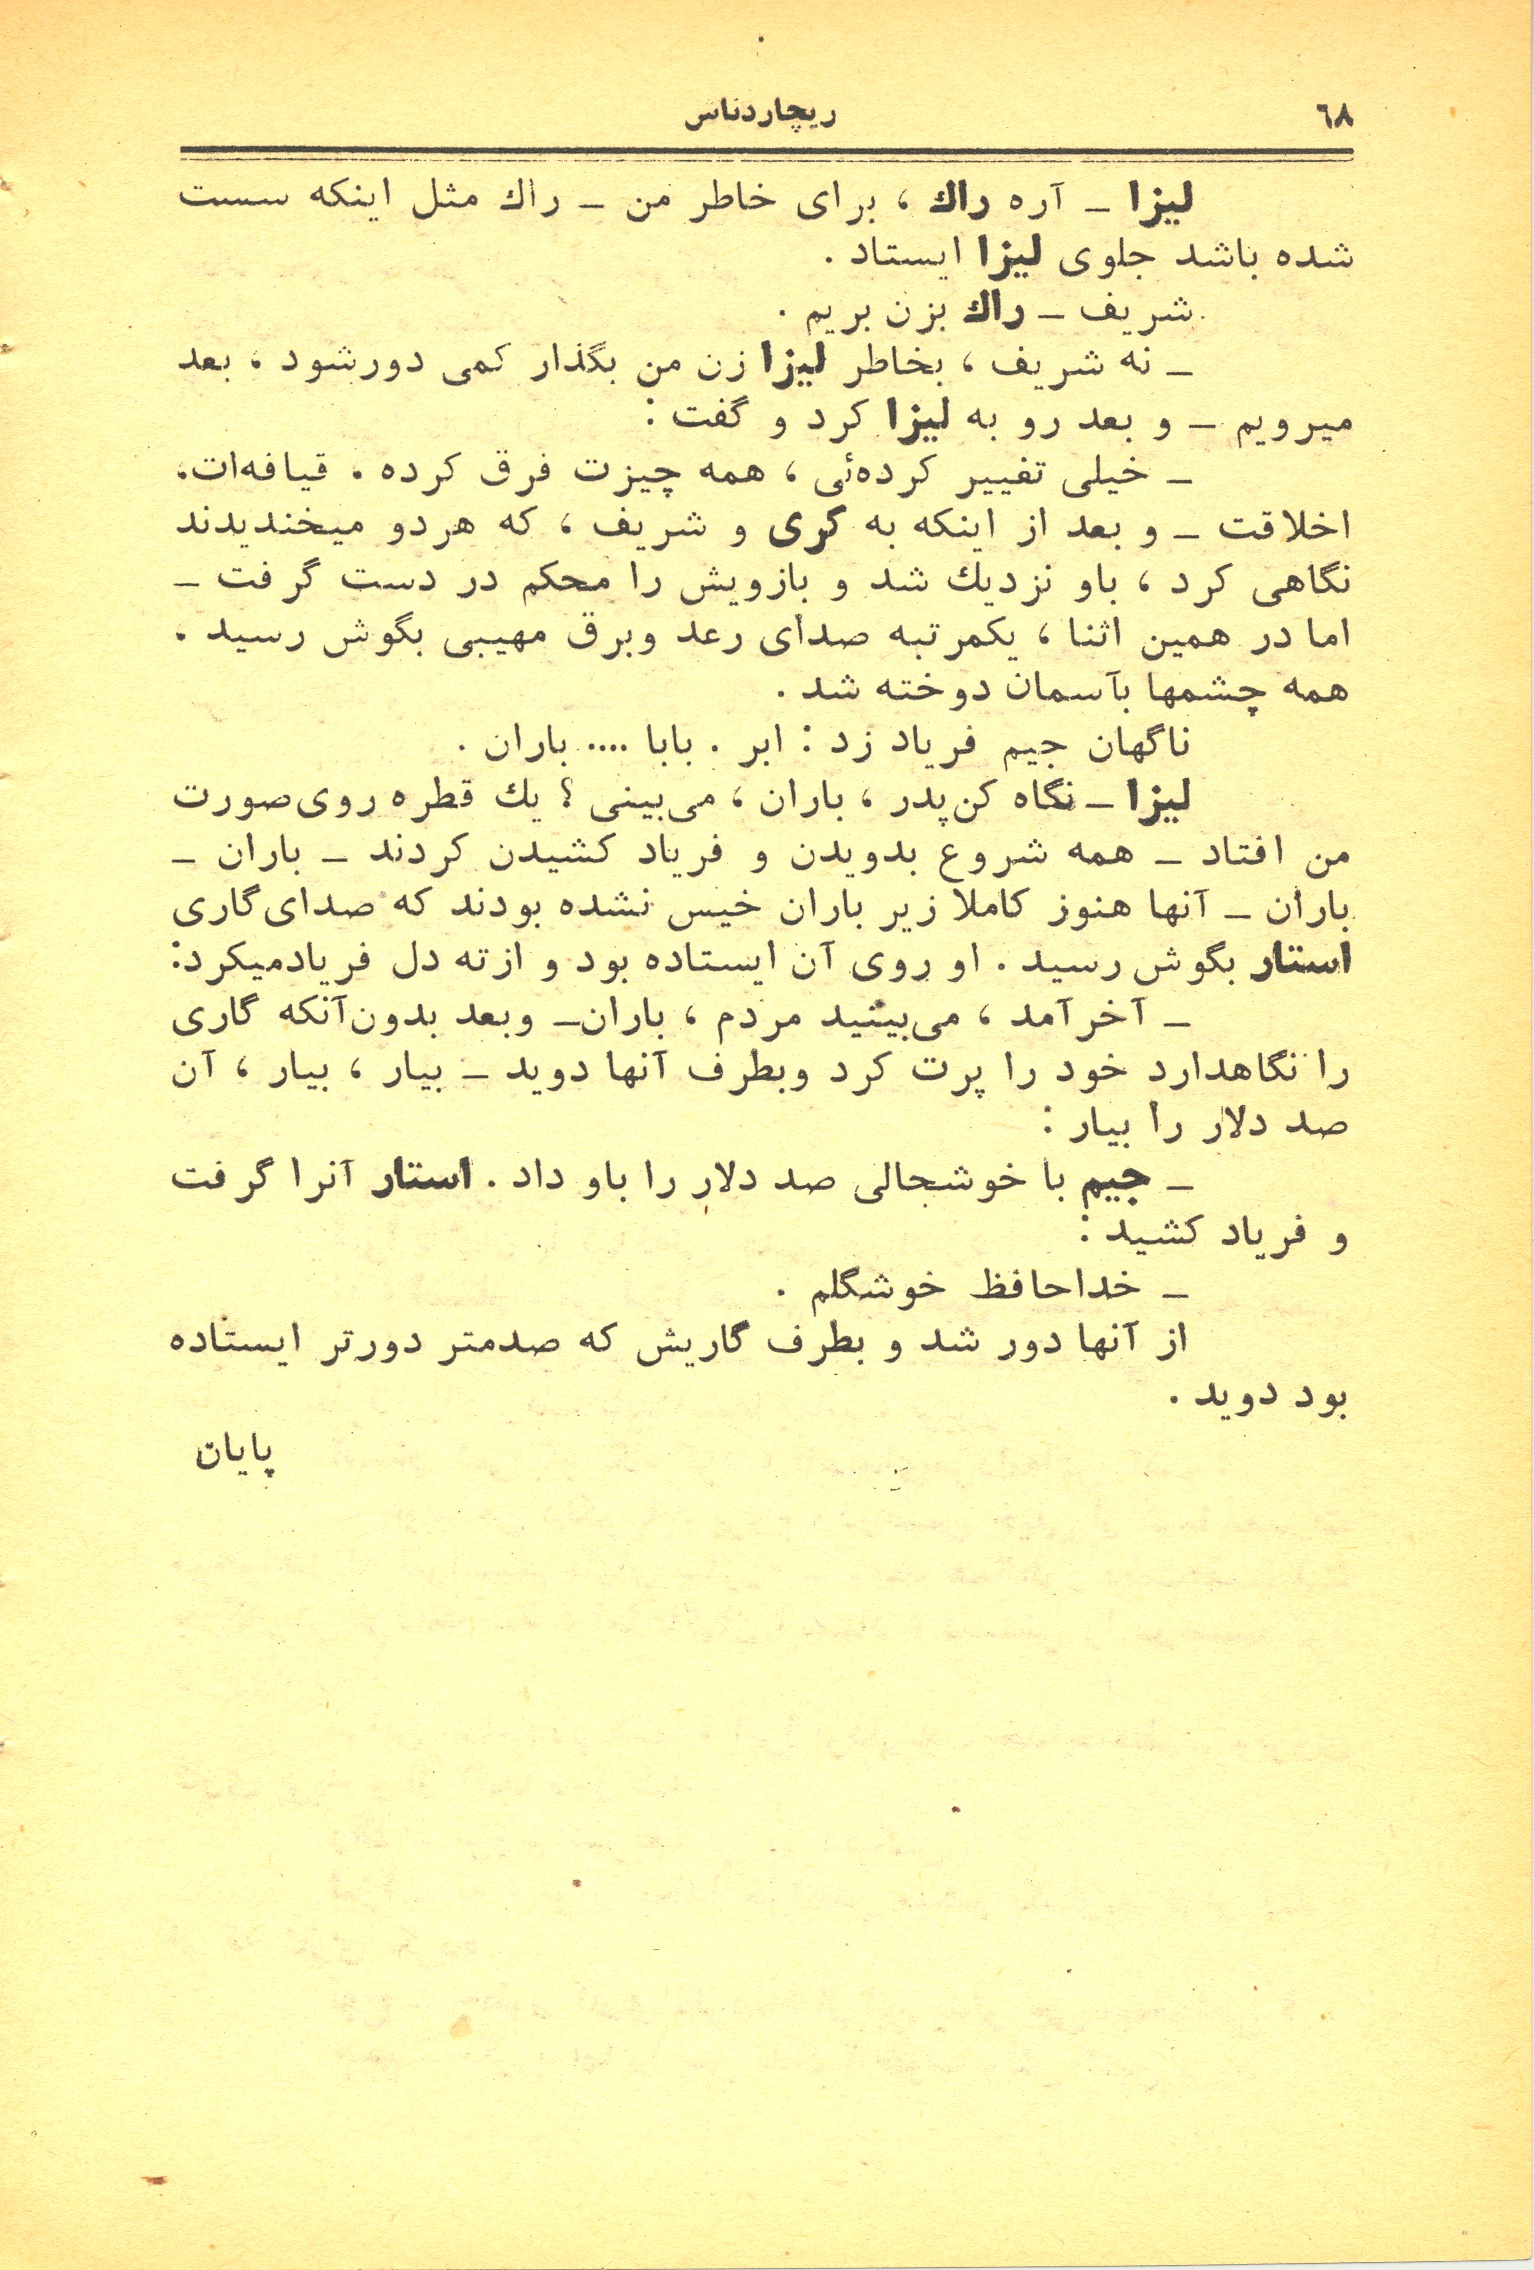 ۶۸
ریچاردناس
لیزا ـ آره راك ، برای خاطر من ـ راك مثل اینکه سست
شده باشد جلوی لیزا ایستاد .
شریف ـ راك بزن بریم .
ـ نه شریف ، بخاطر لیزا زن من بگذار کمی دورشود ، بعد
میرویم ـ و بعد رو به لیزا کرد و گفت :
ـ خیلی تغییر کرده‌ئی ، همه چیزت فرق کرده . قیافه‌ات.
اخلاقت ـ و بعد از اینکه به کری و شریف ، که هردو میخندیدند
نگاهی کرد ، باو نزدیك شد و بازویش را محکم در دست گرفت ـ
اما در همین اثنا ، یکمرتبه صدای رعد وبرق مهیبی بگوش رسید .
همه چشمها بآسمان دوخته شد .
ناگهان جیم فریاد زد : ابر . بابا .... باران .
لیزا ـ نگاه کن‌پدر ، باران ، می‌بینی ؟ یك قطره روی‌صورت
من افتاد ـ همه شروع بدویدن و فریاد کشیدن کردند ـ باران ـ
باران ـ آنها هنوز کاملا زیر باران خیس نشده بودند که صدای‌گاری
استار بگوش رسید . او روی آن ایستاده بود و ازته دل فریادمیکرد:
ـ آخرآمد ، می‌بینید مردم ، باران‌ـ وبعد بدون‌آنکه گاری
را نگاهدارد خود را پرت کرد وبطرف آنها دوید ـ بیار ، بیار ، آن
صد دلار را بیار :
ـ جیم با خوشحالی صد دلار را باو داد . استار آنرا گرفت
و فریاد کشید :
ـ خداحافظ خوشگلم .
از آنها دور شد و بطرف گاریش که صدمتر دورتر ایستاده
بود دوید .
پایان